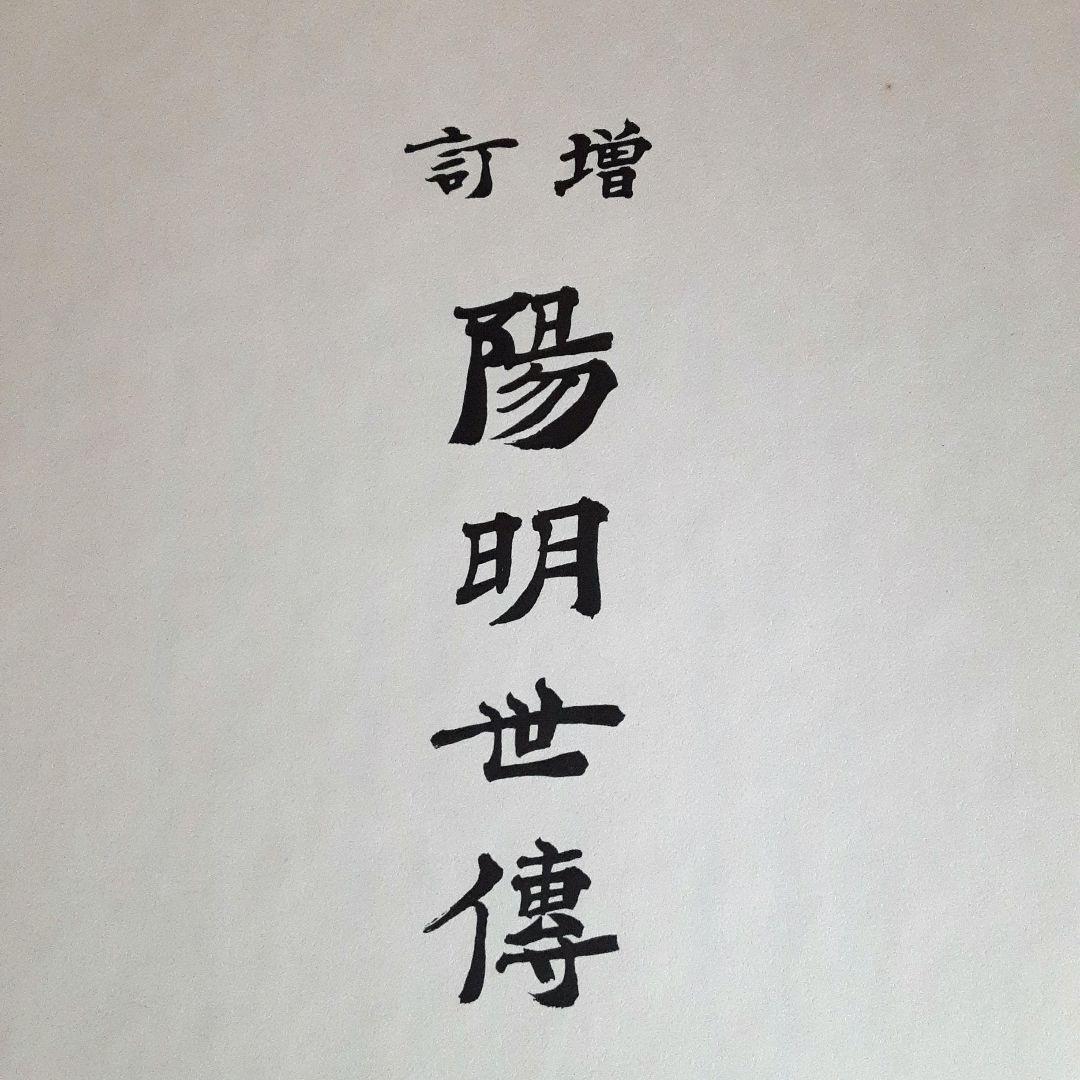 増訂
陽明世傳